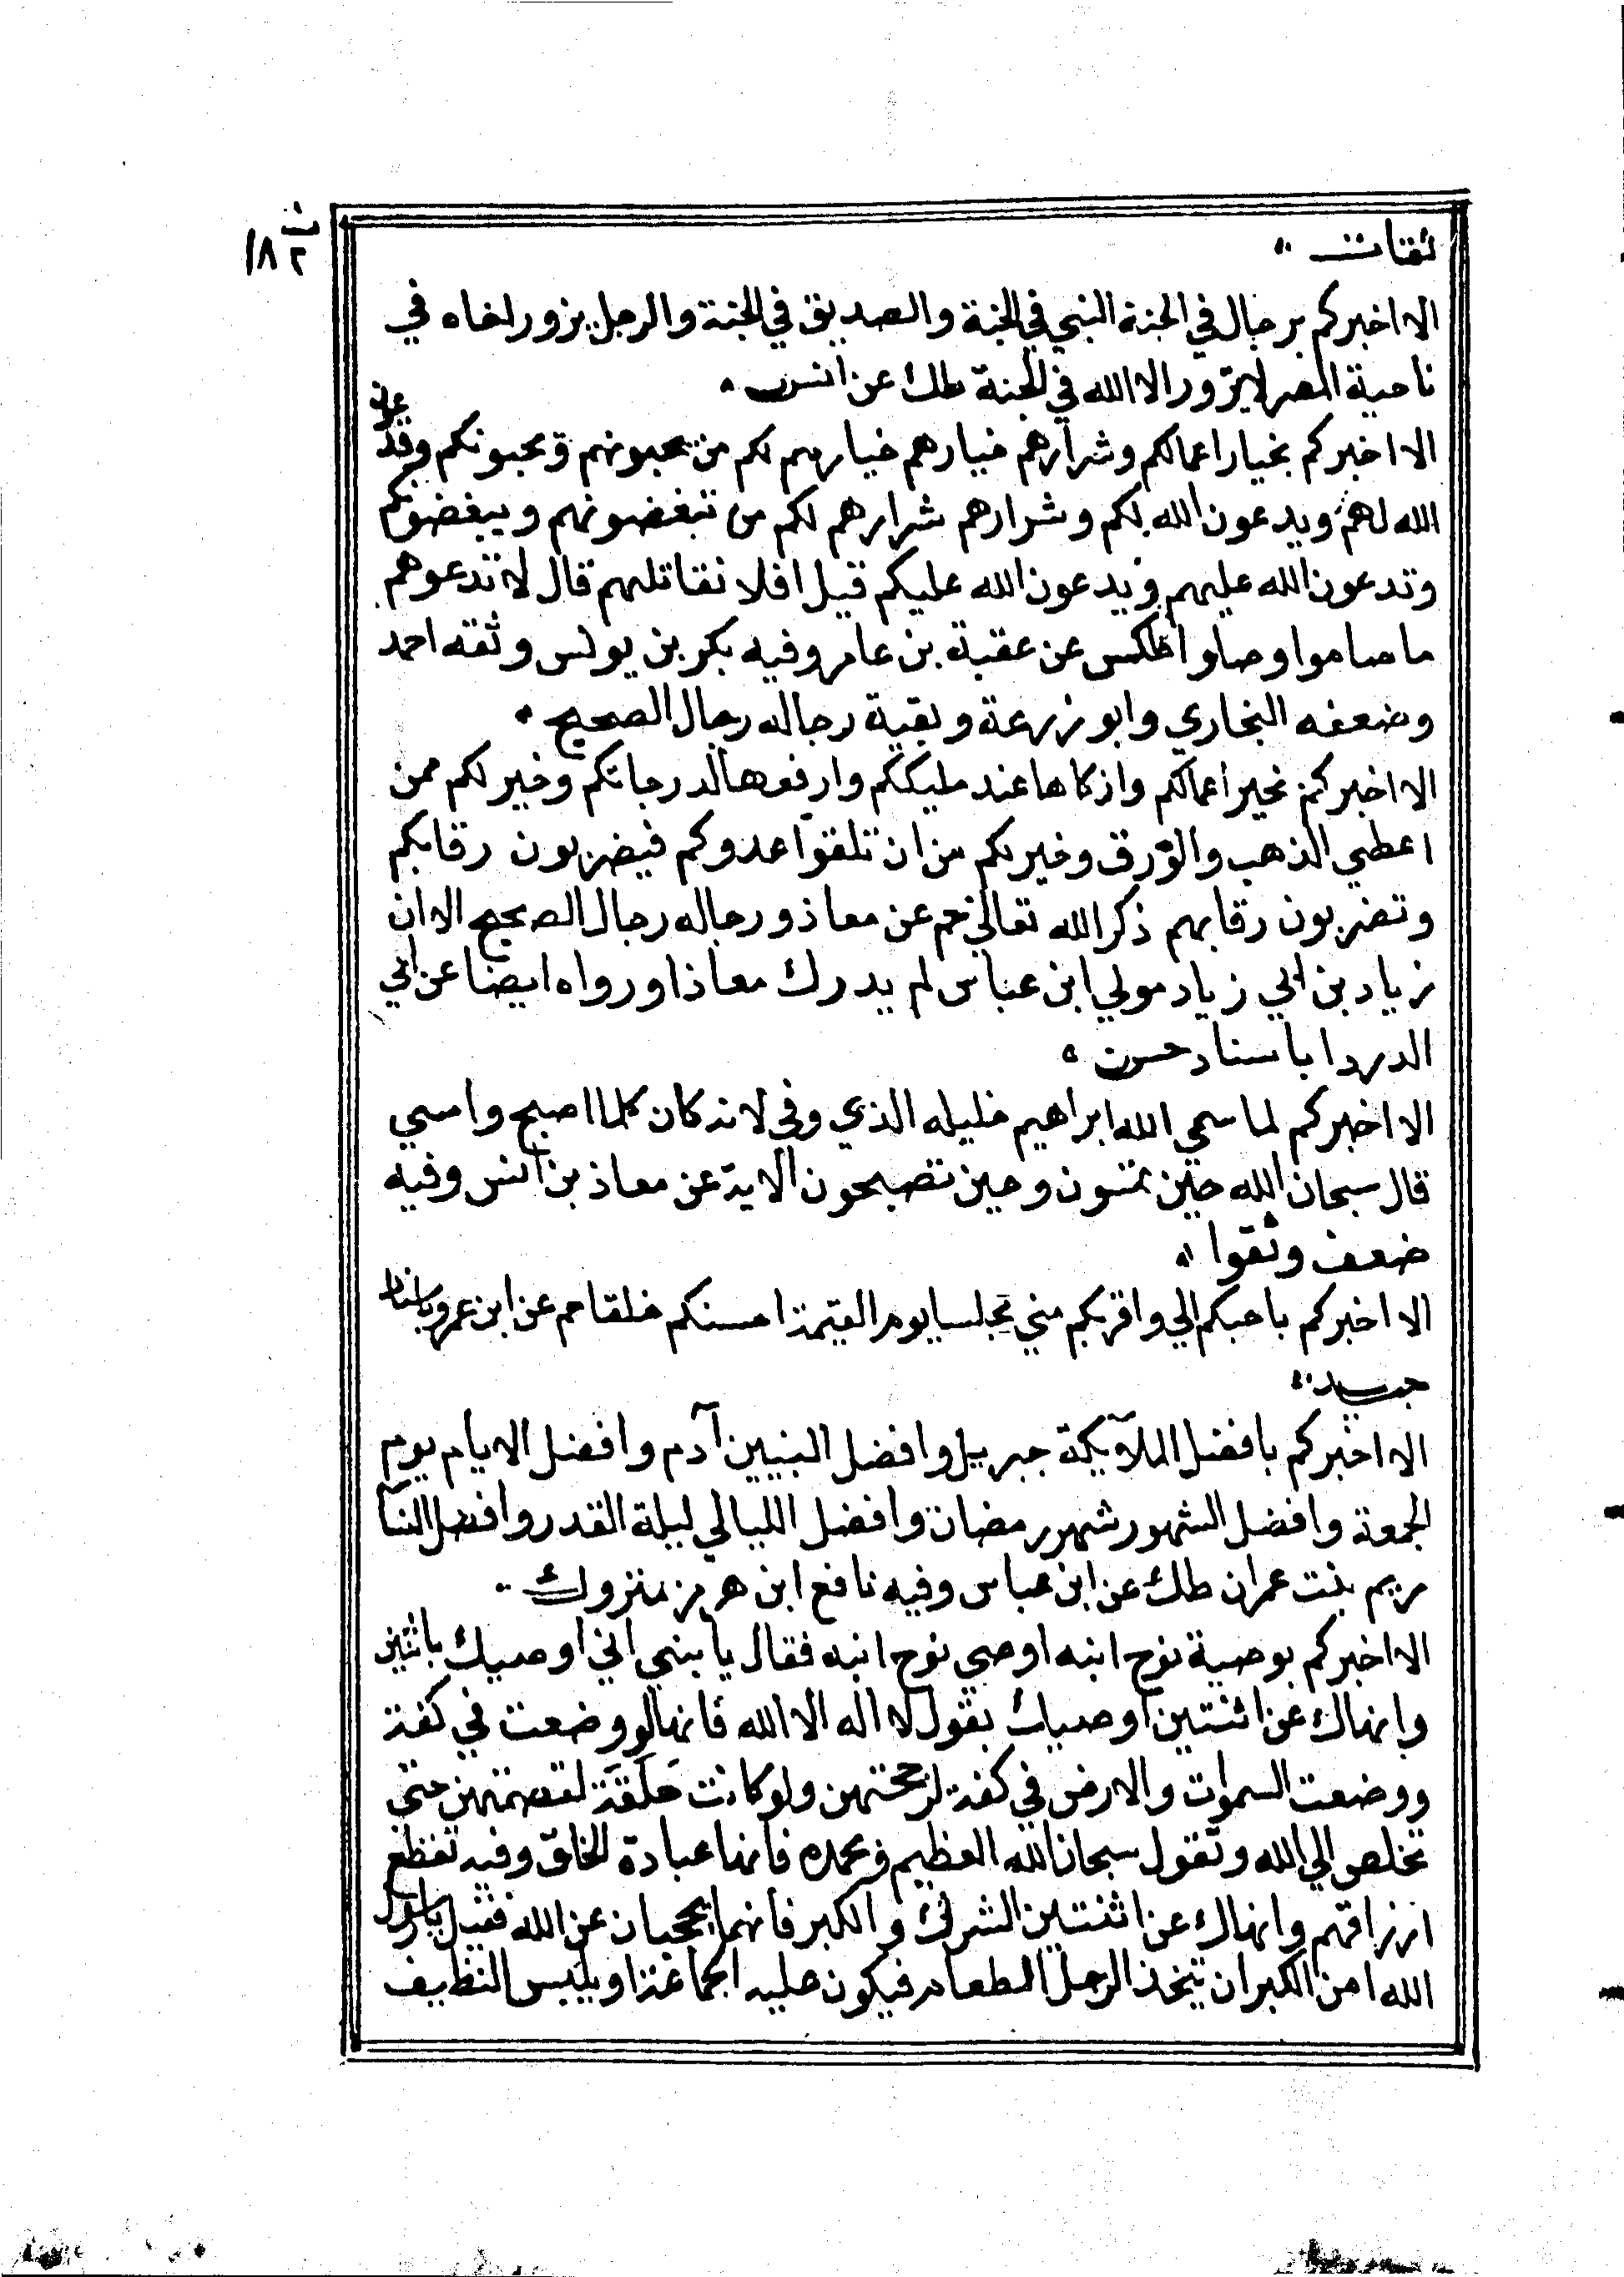 ث
١٨٢
ثقات
الا اخبركم برجال في الجنة النبي في الجنة والصديق في الجنة والرجل يزور اخاه في
ناحية المصر لا يزور الا الله في الجنة طك عن انس
الا اخبركم بخيار اعمالكم وشرارهم خيارهم خيارهم لكم من تحبونهم ويحبونكم وتدعون
الله لهم ويدعون الله لكم وشرارهم شرارهم لكم من تبغضونهم ويبغضونكم
وتدعون الله عليهم ويدعون الله عليكم قيل افلا نقاتلهم قال لا تدعوهم
ما صاموا وصلوا طكس عن عقبة بن عامر وفيه بكر بن يونس وثقه احمد
وضعفه البخاري وابو زرعة وبقية رجاله رجال الصحيح
الا اخبركم بخير اعمالكم وازكاها عند مليككم وارفعها لدرجاتكم وخير لكم ممن
اعطي الذهب والورق وخير لكم من ان تلقوا عدوكم فيضربون رقابكم
وتضربون رقابهم ذكر الله تعالي حم عن معاذ ورجاله رجال الصحيح الا ان
زياد بن ابي زياد مولي ابن عباس لم يدرك معاذا ورواه ايضا عن ابي
الدردا باسناد حسن
الا اخبركم لما سمي الله ابراهيم خليله الذي وفي لانه كان كلما اصبح وامسي
قال سبحان الله حين تمسون وحين تصبحون الاية عن معاذ بن انس وفيه
ضعف وثقوا
الا اخبركم باحبكم الي واقربكم مني مجلسا يوم القيمة احسنكم خلقا حم عن ابن عمرو باسناد
جيد
الا اخبركم بافضل الملآيكة جبريل وافضل النبيين آدم وافضل الايام يوم
الجمعة وافضل الشهور شهر رمضان وافضل الليالي ليلة القدر وافضل النسآ
مريم بنت عمران طك عن ابن عباس وفيه نافع ابن هرمز متروك
الا اخبركم بوصية نوح ابنه اوصي نوح ابنه فقال يا بني اني اوصيك باثنتين
وانهاك عن اثنتين اوصيك بقول لا اله الا الله فانها لو وضعت في كفة
ووضعت السموات والارض في كفة لرجحتهن ولو كانت حَلَقَة لقصمتهن حتي
تخلص الي الله وتقول سبحان الله العظيم وبحمده فانها عبادة الخلق وفيه تقطع
ارزاقهم وانهاك عن اثنتين الشرك والكبر فانهما يحجبان عن الله فقيل يا رسول
الله امن الكبر ان يتخذ الرجل الطعام فيكون عليه الجماعة او يلبس النظيف